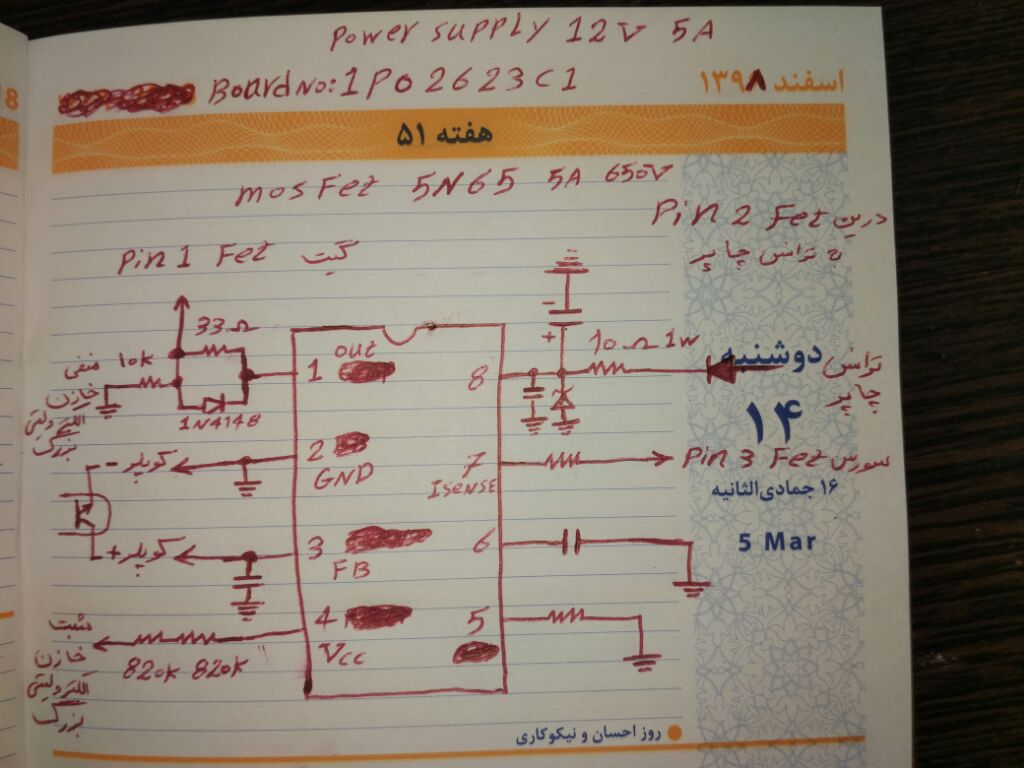 Power supply 12V 5A
Board No: 1P02623C1
اسفند ۱۳۹۸
هفته ۵۱
mosFet 5N65 5A 650V
Pin 2 Fet درین
به تراس چاپر
Pin 1 Fet گیت
33Ω
10k
1N4148
منفی
خازن
الکترولیتی
بزرگ
1 out
2
GND
3
FB
4
Vcc
8
7
ISENSE
6
5
- +
10Ω 1w
دوشنبه
تراس
چاپر
۱۴
Pin 3 Fet سورس
۱۶ جمادی‌الثانیه
5 Mar
کوپلر -
کوپلر +
مثبت
خازن
الکترولیتی
بزرگ
820k 820k
روز احسان و نیکوکاری
8